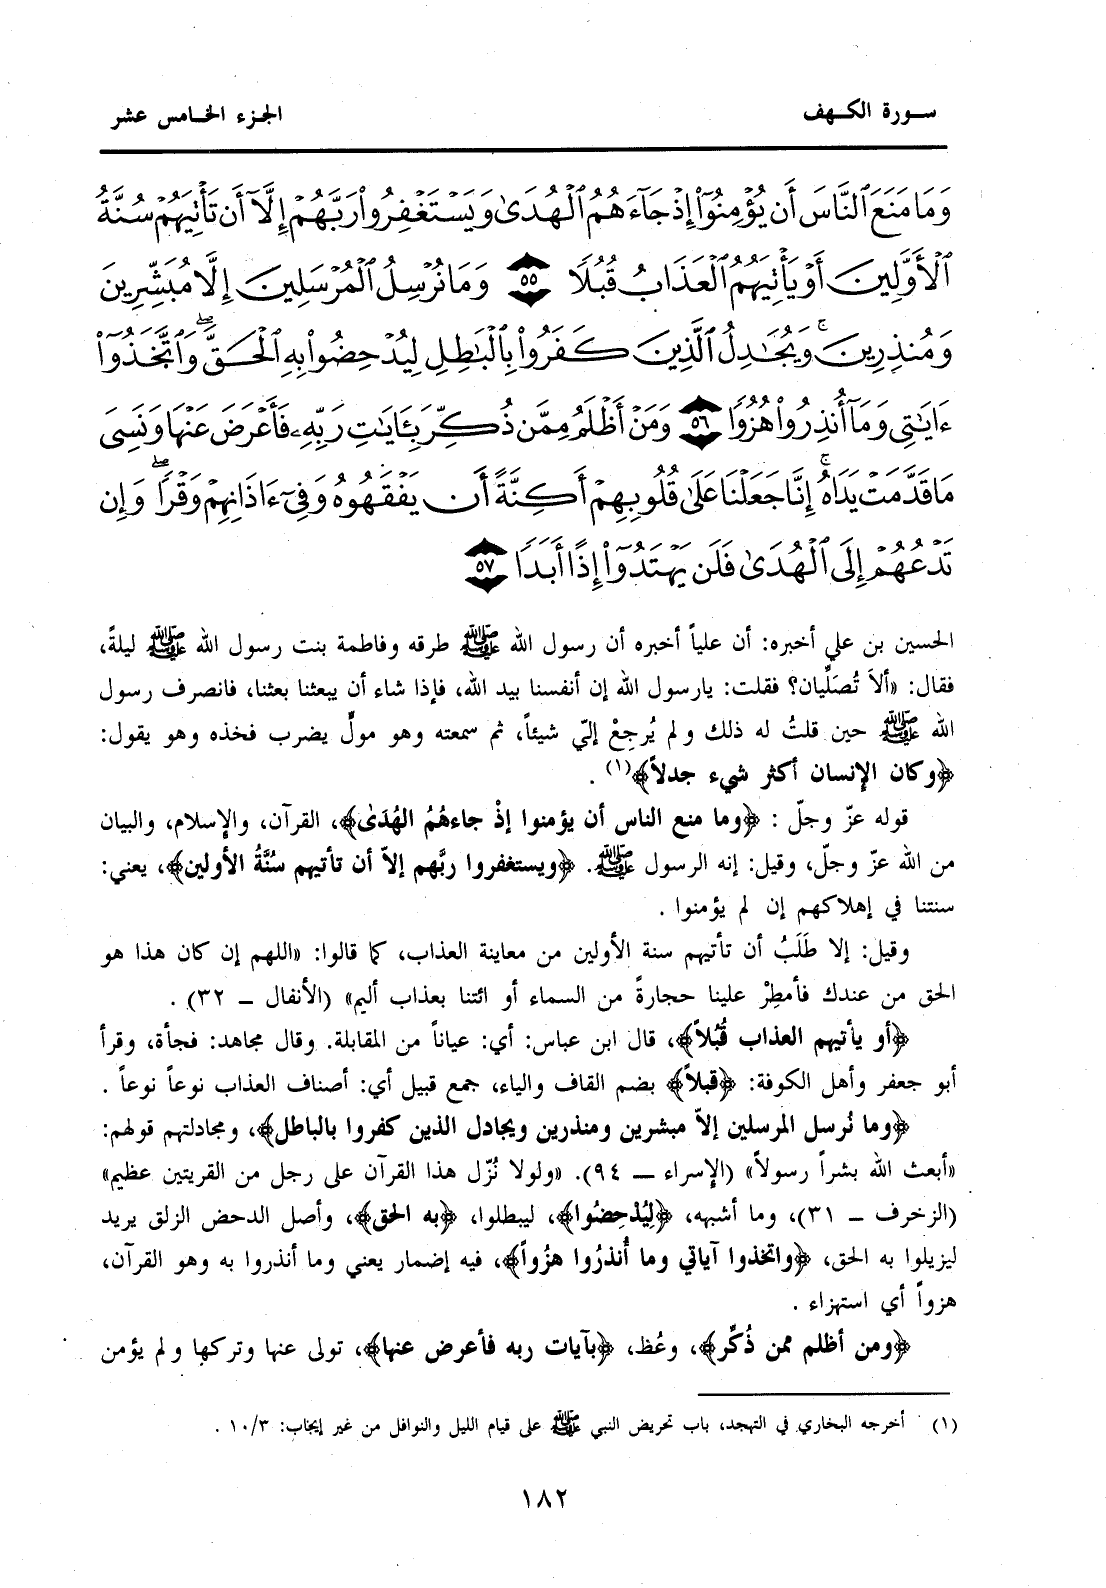 سورة الكهف
الجزء الخامس عشر
وَمَا مَنَعَ ٱلنَّاسَ أَن يُؤْمِنُوٓا۟ إِذْ جَآءَهُمُ ٱلْهُدَىٰ وَيَسْتَغْفِرُوا۟ رَبَّهُمْ إِلَّآ أَن تَأْتِيَهُمْ سُنَّةُ
ٱلْأَوَّلِينَ أَوْ يَأْتِيَهُمُ ٱلْعَذَابُ قُبُلًا ٥٥ وَمَا نُرْسِلُ ٱلْمُرْسَلِينَ إِلَّا مُبَشِّرِينَ
وَمُنذِرِينَ ۚ وَيُجَٰدِلُ ٱلَّذِينَ كَفَرُوا۟ بِٱلْبَٰطِلِ لِيُدْحِضُوا۟ بِهِ ٱلْحَقَّ ۖ وَٱتَّخَذُوٓا۟
ءَايَٰتِى وَمَآ أُنذِرُوا۟ هُزُوًا ٥٦ وَمَنْ أَظْلَمُ مِمَّن ذُكِّرَ بِـَٔايَٰتِ رَبِّهِۦ فَأَعْرَضَ عَنْهَا وَنَسِىَ
مَا قَدَّمَتْ يَدَاهُ ۚ إِنَّا جَعَلْنَا عَلَىٰ قُلُوبِهِمْ أَكِنَّةً أَن يَفْقَهُوهُ وَفِىٓ ءَاذَانِهِمْ وَقْرًا ۖ وَإِن
تَدْعُهُمْ إِلَى ٱلْهُدَىٰ فَلَن يَهْتَدُوٓا۟ إِذًا أَبَدًا ٥٧
الحسين بن علي أخبره: أن علياً أخبره أن رسول الله ﷺ طرقه وفاطمة بنت رسول الله ﷺ ليلةً،
فقال: «ألاَ تُصَلِّيان؟ فقلت: يارسول الله إن أنفسنا بيد الله، فإذا شاء أن يبعثنا بعثنا، فانصرف رسول
الله ﷺ حين قلتُ له ذلك ولم يُرجِعْ إليّ شيئاً، ثم سمعته وهو مولٍّ يضرب فخذه وهو يقول:
﴿وكان الإنسان أكثر شيء جدلاً﴾(١) .
قوله عزّ وجلّ : ﴿وما منع الناس أن يؤمنوا إذْ جاءهُمُ الهُدَىٰ﴾، القرآن، والإسلام، والبيان
من الله عزّ وجلّ، وقيل: إنه الرسول ﷺ. ﴿ويستغفروا ربَّهم إلاّ أن تأتيهم سُنَّةُ الأولين﴾، يعني:
سنتنا في إهلاكهم إن لم يؤمنوا .
وقيل: إلا طَلَبُ أن تأتيهم سنة الأولين من معاينة العذاب، كما قالوا: «اللهم إن كان هذا هو
الحق من عندك فأمطِرْ علينا حجارةً من السماء أو ائتنا بعذاب أليم» (الأنفال ــ ٣٢) .
﴿أو يأتيهم العذاب قُبُلاً﴾، قال ابن عباس: أي: عياناً من المقابلة. وقال مجاهد: فجأة، وقرأ
أبو جعفر وأهل الكوفة: ﴿قبلاً﴾ بضم القاف والياء، جمع قبيل أي: أصناف العذاب نوعاً نوعاً .
﴿وما نُرسل المرسلين إلاّ مبشرين ومنذرين ويجادل الذين كفروا بالباطل﴾، ومجادلتهم قولهم:
«أبعث الله بشراً رسولاً» (الإسراء ــ ٩٤). «ولولا نُزّل هذا القرآن على رجل من القريتين عظيم»
(الزخرف ــ ٣١)، وما أشبهه، ﴿لِيُدْحِضُوا﴾، ليبطلوا، ﴿به الحق﴾، وأصل الدحض الزلق يريد
ليزيلوا به الحق، ﴿واتخذوا آياتي وما أُنذرُوا هزُواً﴾، فيه إضمار يعني وما أنذروا به وهو القرآن،
هزواً أي استهزاء .
﴿ومن أظلم ممن ذُكِّر﴾، وعُظ، ﴿بآيات ربه فأعرض عنها﴾، تولى عنها وتركها ولم يؤمن
(١) أخرجه البخاري في التهجد، باب تحريض النبي ﷺ على قيام الليل والنوافل من غير إيجاب: ١٠/٣ .
١٨٢